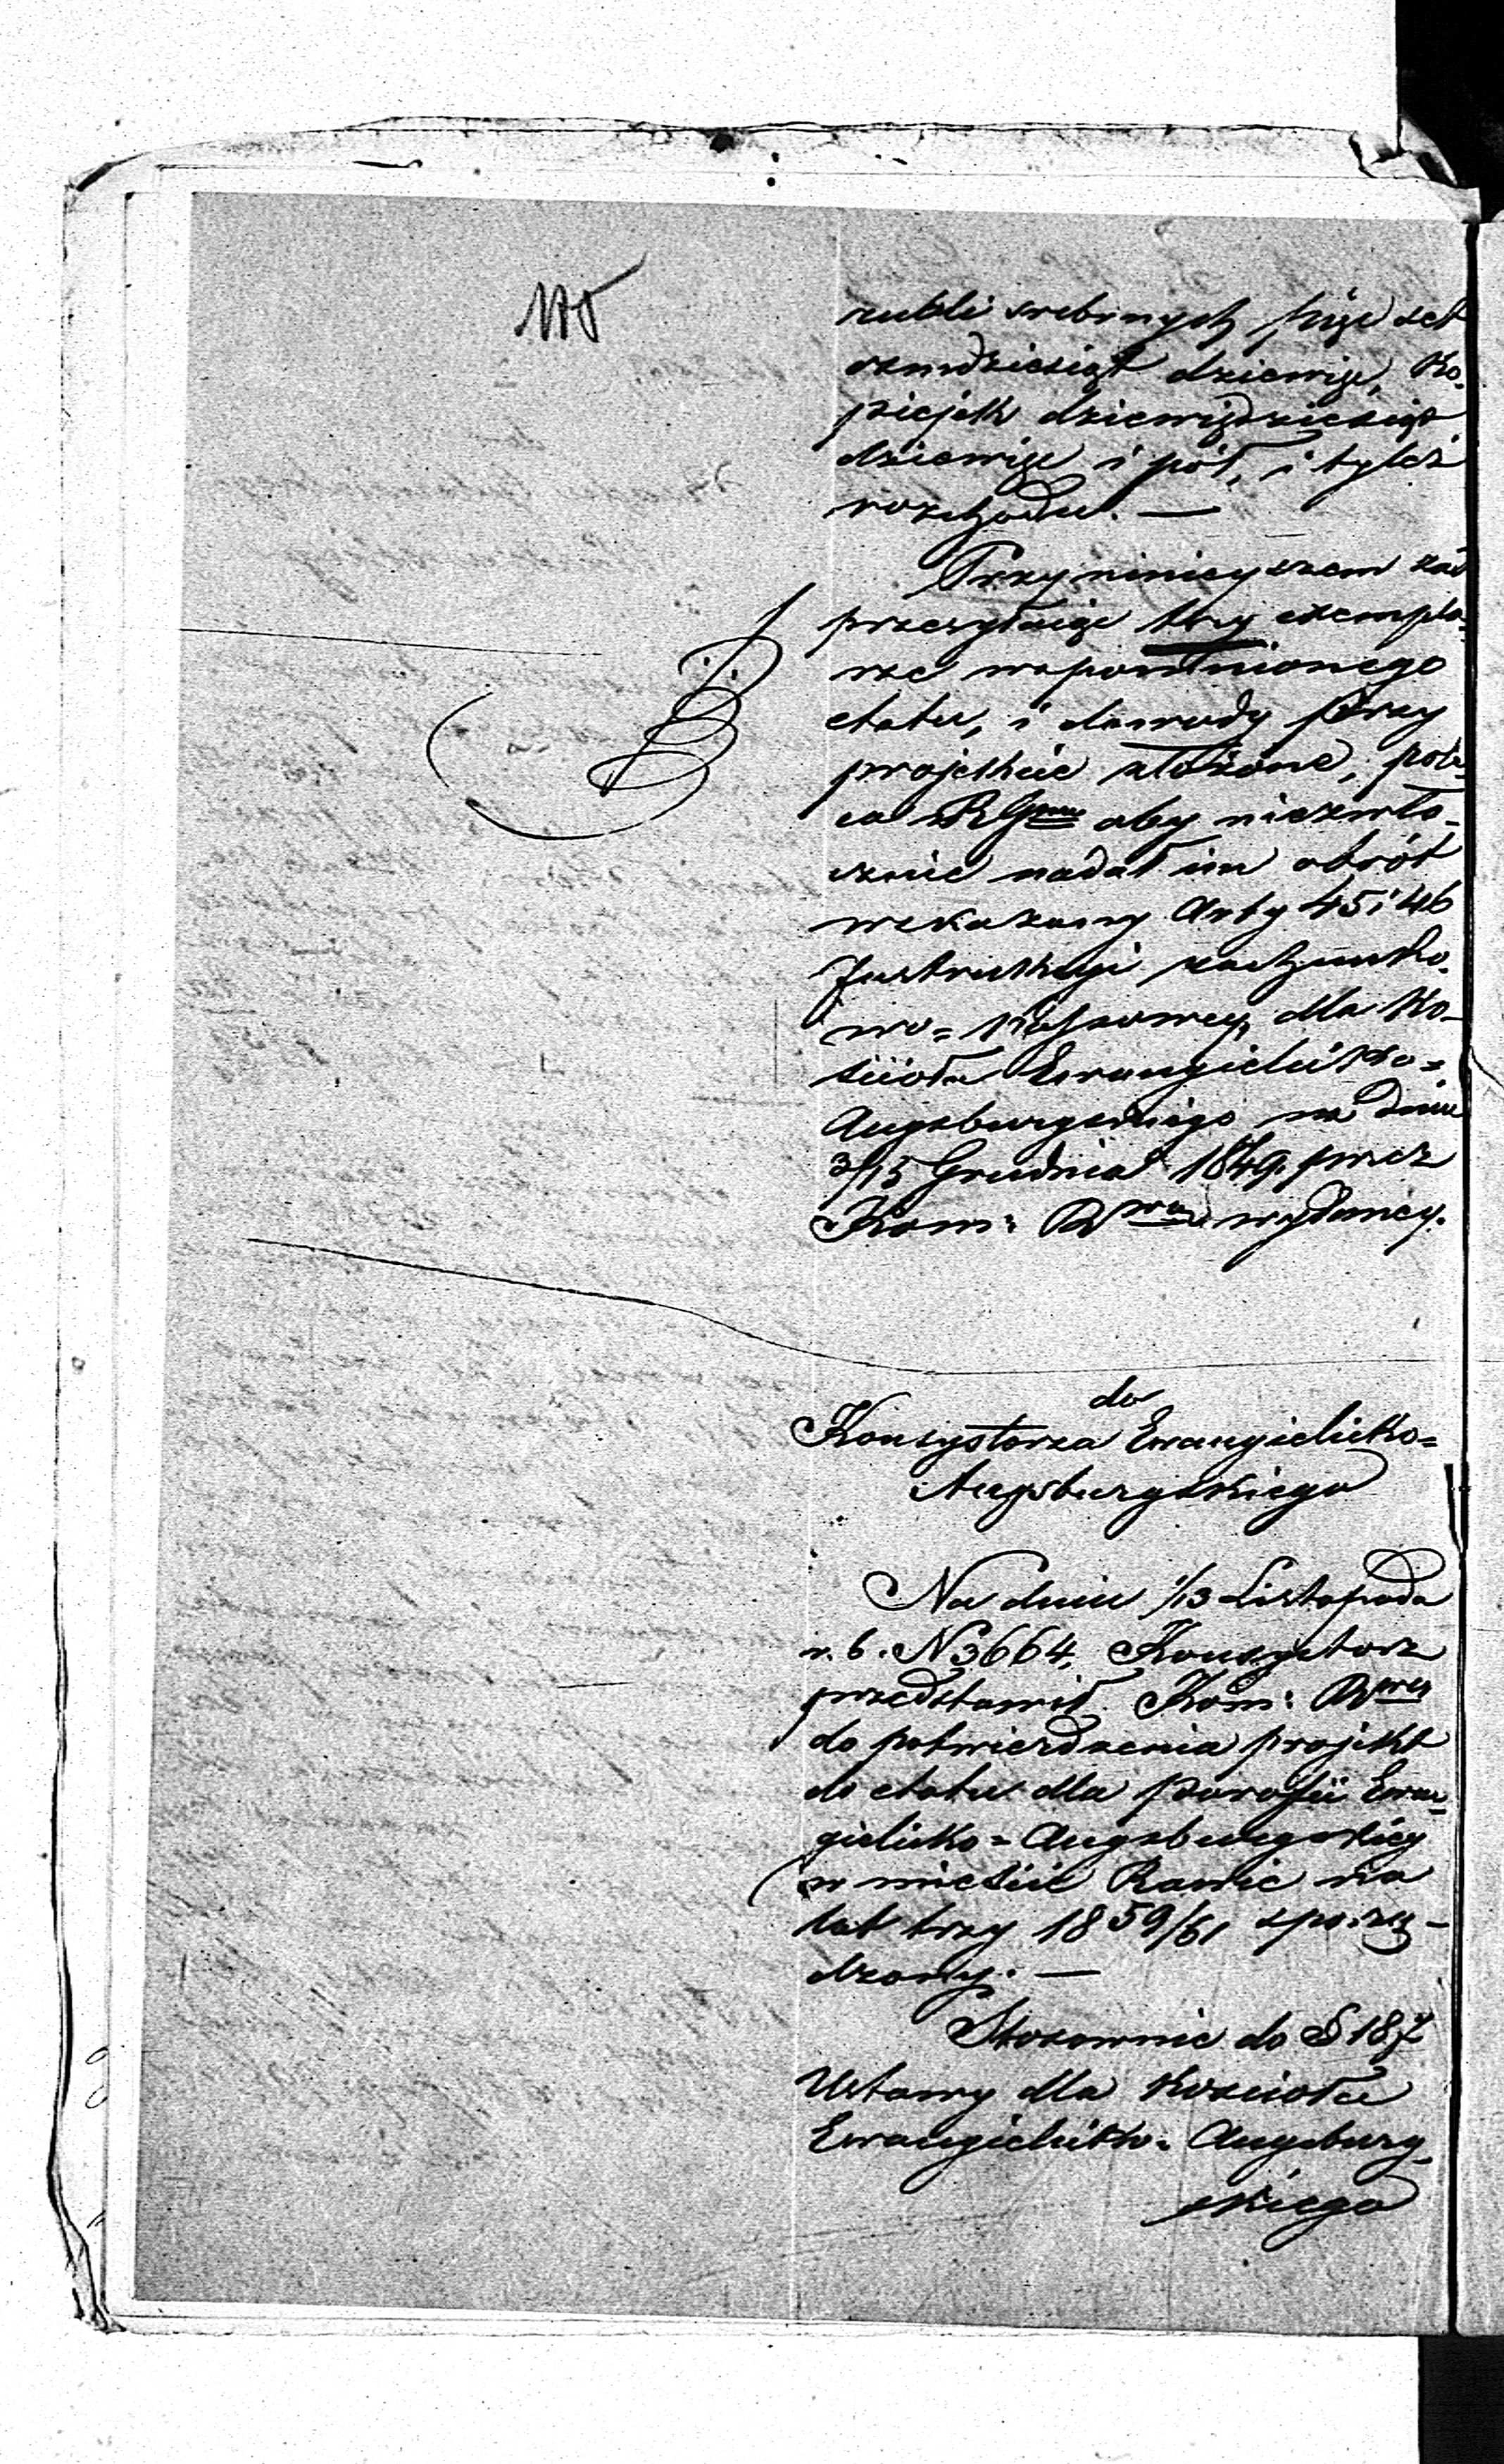 rubli srebrnych pięćset
osmdziesiąt dziewięć, Ko-
piejek dziewięćdziesiąt
dziewięć i pół, i tyleż
rozchodu. —
Przy niniejszem zaś
przesyłając trzy exempla-
rze wspomnionego
etatu, i dowody przy
projekcie złożone, pole-
ca RGmu aby niezwło-
cznie nadał im obrót
wskazany Arty 45 i 46
Instrukcyi rachunko-
wo-kassowey, dla Ko-
ścioła Ewangielicko-
Augsburgskiego na dniu
3/15 Grudnia 1849 przez
Kom: Rwą wydaney.
do
Konsystorza Ewangielicko-
Augsburgskiego
Na dniu 1/13 Listopada
r. b. N 3664, Konsystorz
przedstawił Kom: Rwey
do potwierdzenia projekt
do etatu dla parafii Ewan-
gielicko-Augsburgskiey
w mieście Rawie na
lat trzy 1859/61 sporzą-
dzony. —
Stosownie do § 187
Ustawy dla Kościoła
Ewangielicko-Augsburg-
skiego